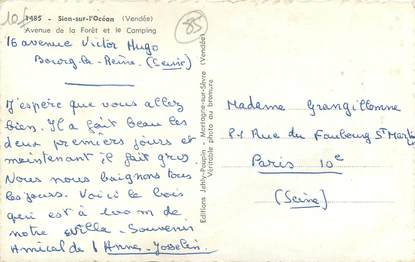 10f
1485 - Sion-sur-l'Océan (Vendée)
Avenue de la Forêt et le Camping
85
16 avenue Victor Hugo
Bourg-la-Reine. (Seine)
J'espère que vous allez
bien. Il a fait beau les
deux premiers jours et
maintenant il fait gris.
Nous nous baignons tous
les jours. Voici le bois
qui est à 100m de
notre villa. Souvenir
Amical de Anne-Josselin
Editions Jehly-Poupin - Mortagne-sur-Sèvre (Vendée)
Véritable photo au bromure
Madame Grangillonne
21 Rue du Faubourg St Martin
Paris 10e
(Seine)